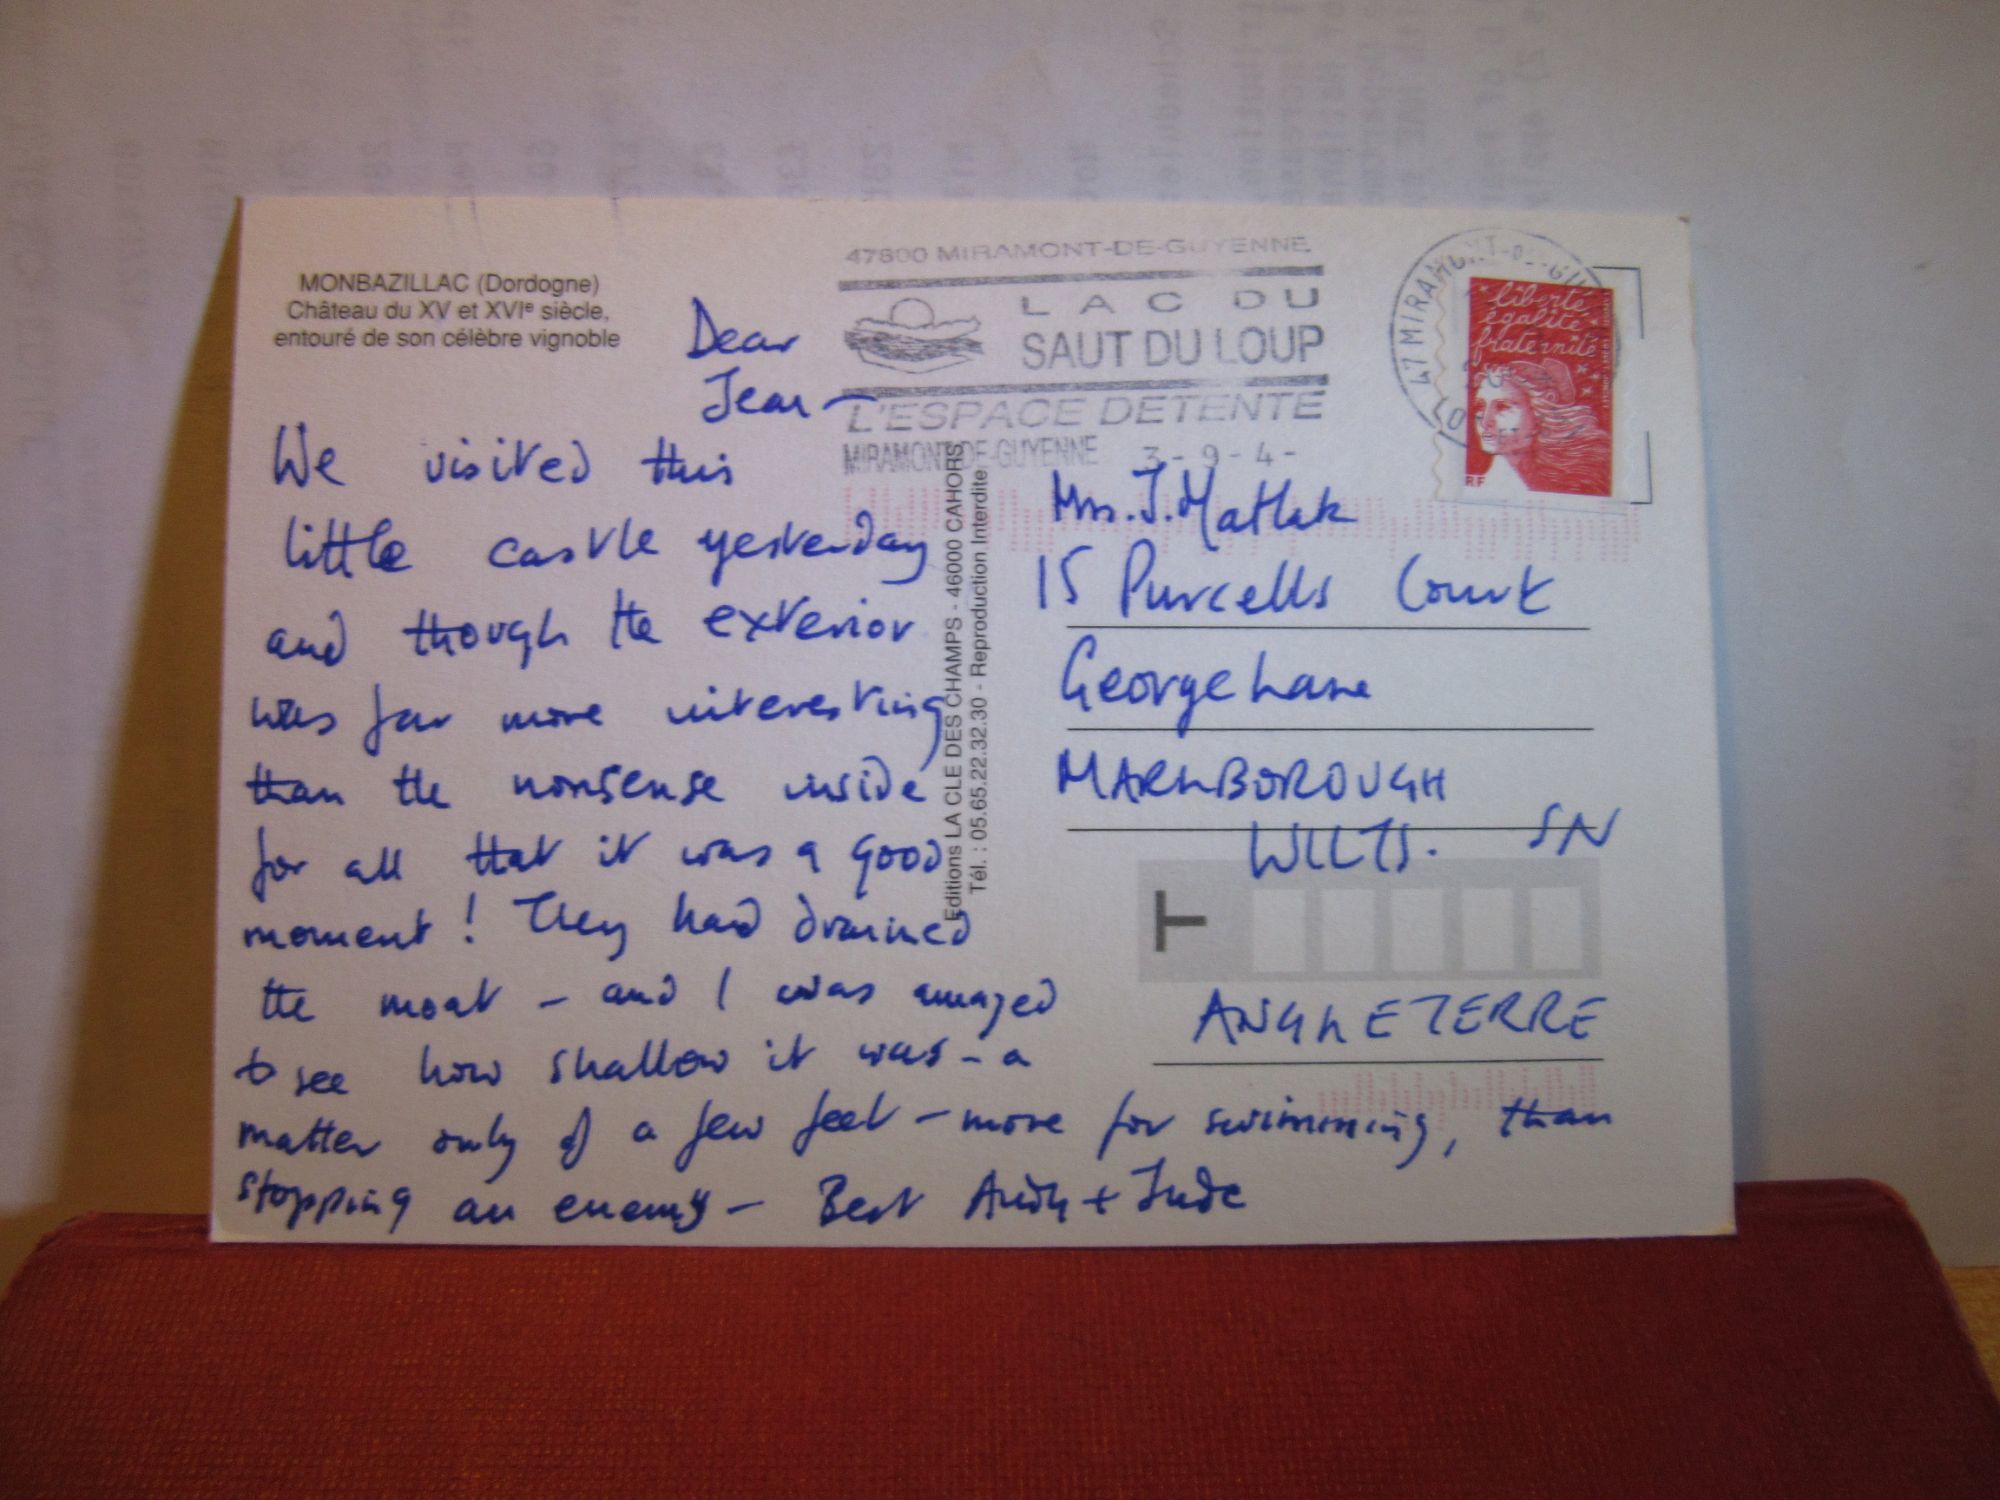 MONBAZILLAC (Dordogne)
Château du XV et XVIe siècle,
entouré de son célèbre vignoble
47800 MIRAMONT-DE-GUYENNE
LAC DU
SAUT DU LOUP
L'ESPACE DETENTE
MIRAMONT-DE-GUYENNE 3-9-4-
47 MIRAMONT-DE-GU
liberté
égalité
fraternité
RF
Dear
Jean —
We visited this
little castle yesterday
and though the exterior
was far more interesting
than the nonsense inside
for all that it was a good
moment! They had drained
the moat - and I was amazed
to see how shallow it was - a
matter only of a few feet - more for swimming, than
stopping an enemy - Best Andy + Jude
Editions LA CLE DES CHAMPS - 46000 CAHORS
Tél. : 05.65.22.32.30 - Reproduction Interdite
Mrs. J. Matlak
15 Purcells Court
George Lane
MARLBOROUGH
WILTS. SN
T
ANGLETERRE